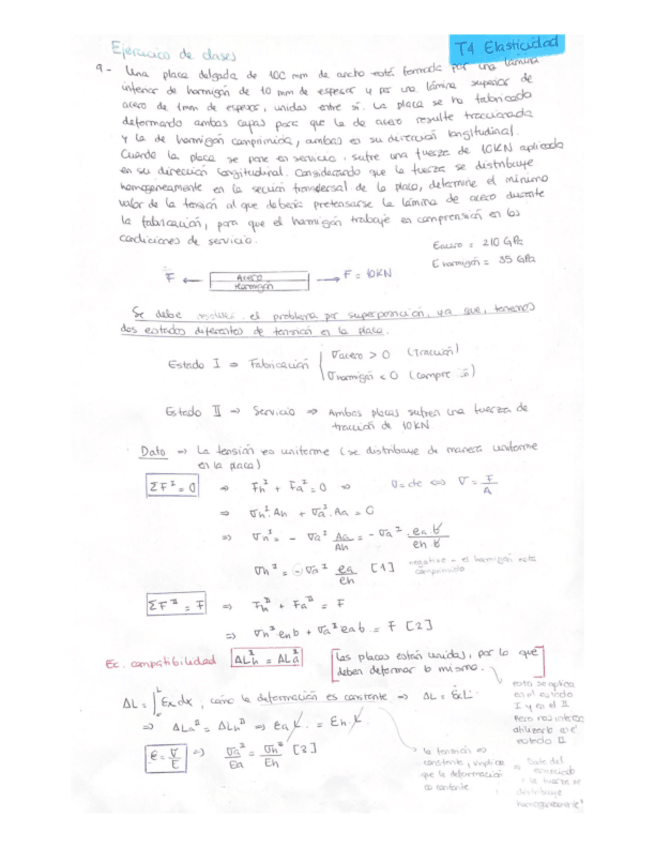 Ejercicios de clases
T4 Elasticidad
9- Una placa delgada de 100 mm de ancho está formada por una lámina
inferior de hormigón de 10 mm de espesor y por una lámina superior de
acero de 1mm de espesor, unidas entre sí. La placa se ha fabricado
deformando ambas capas para que la de acero resulte traccionada
y la de hormigón comprimida, ambas en su dirección longitudinal.
Cuando la placa se pone en servicio, sufre una fuerza de 10KN aplicada
en su dirección longitudinal. Considerando que la fuerza se distribuye
homogéneamente en la sección transversal de la placa, determine el mínimo
valor de la tensión al que debería pretensarse la lámina de acero durante
la fabricación, para que el hormigón trabaje en compresión en las
condiciones de servicio.
Eacero = 210 GPa
Ehormigón = 35 GPa
F ← Acero → F = 10KN
Hormigón
Se debe resolver el problema por superposición, ya que, tenemos
dos estados diferentes de tensión en la placa.
Estado I ⇒ Fabricación { σacero > 0 (Tracción)
σhormigón < 0 (Compresión)
Estado II ⇒ Servicio ⇒ Ambas placas sufren una fuerza de
tracción de 10KN.
Dato ⇒ La tensión es uniforme (se distribuye de manera uniforme
en la placa)
ΣF^I = 0 ⇒ Fh^I + Fa^I = 0 ⇒ σ=cte ⇔ σ = F/A
⇒ σh^I · Ah + σa^I · Aa = 0
⇒ σh^I = - σa^I Aa/Ah = - σa^I · ea·b/eh·b
σh^I = - σa^I ea/eh [1] negativo = el hormigón está
comprimido
ΣF^II = F ⇒ Fh^II + Fa^II = F
⇒ σh^II eh b + σa^II ea b = F [2]
Ec. compatibilidad ΔLh^II = ΔLa^II [Las placas están unidas, por lo que
deben deformar lo mismo.]
ΔL = ∫₀^L εx dx, como la deformación es constante ⇒ ΔL = εx L
⇒ ΔLa^II = ΔLh^II ⇒ εa L = εh L
ε = σ/E ⇒ σa^II/Ea = σh^II/Eh [3]
esto se aplica
en el estado
I y en el II.
Pero nos interesa
utilizarlo en el
estado II
la tensión es
constante, implica
que la deformación
es constante
⇒ Dato del
enunciado
"la fuerza se
distribuye
homogéneamente"